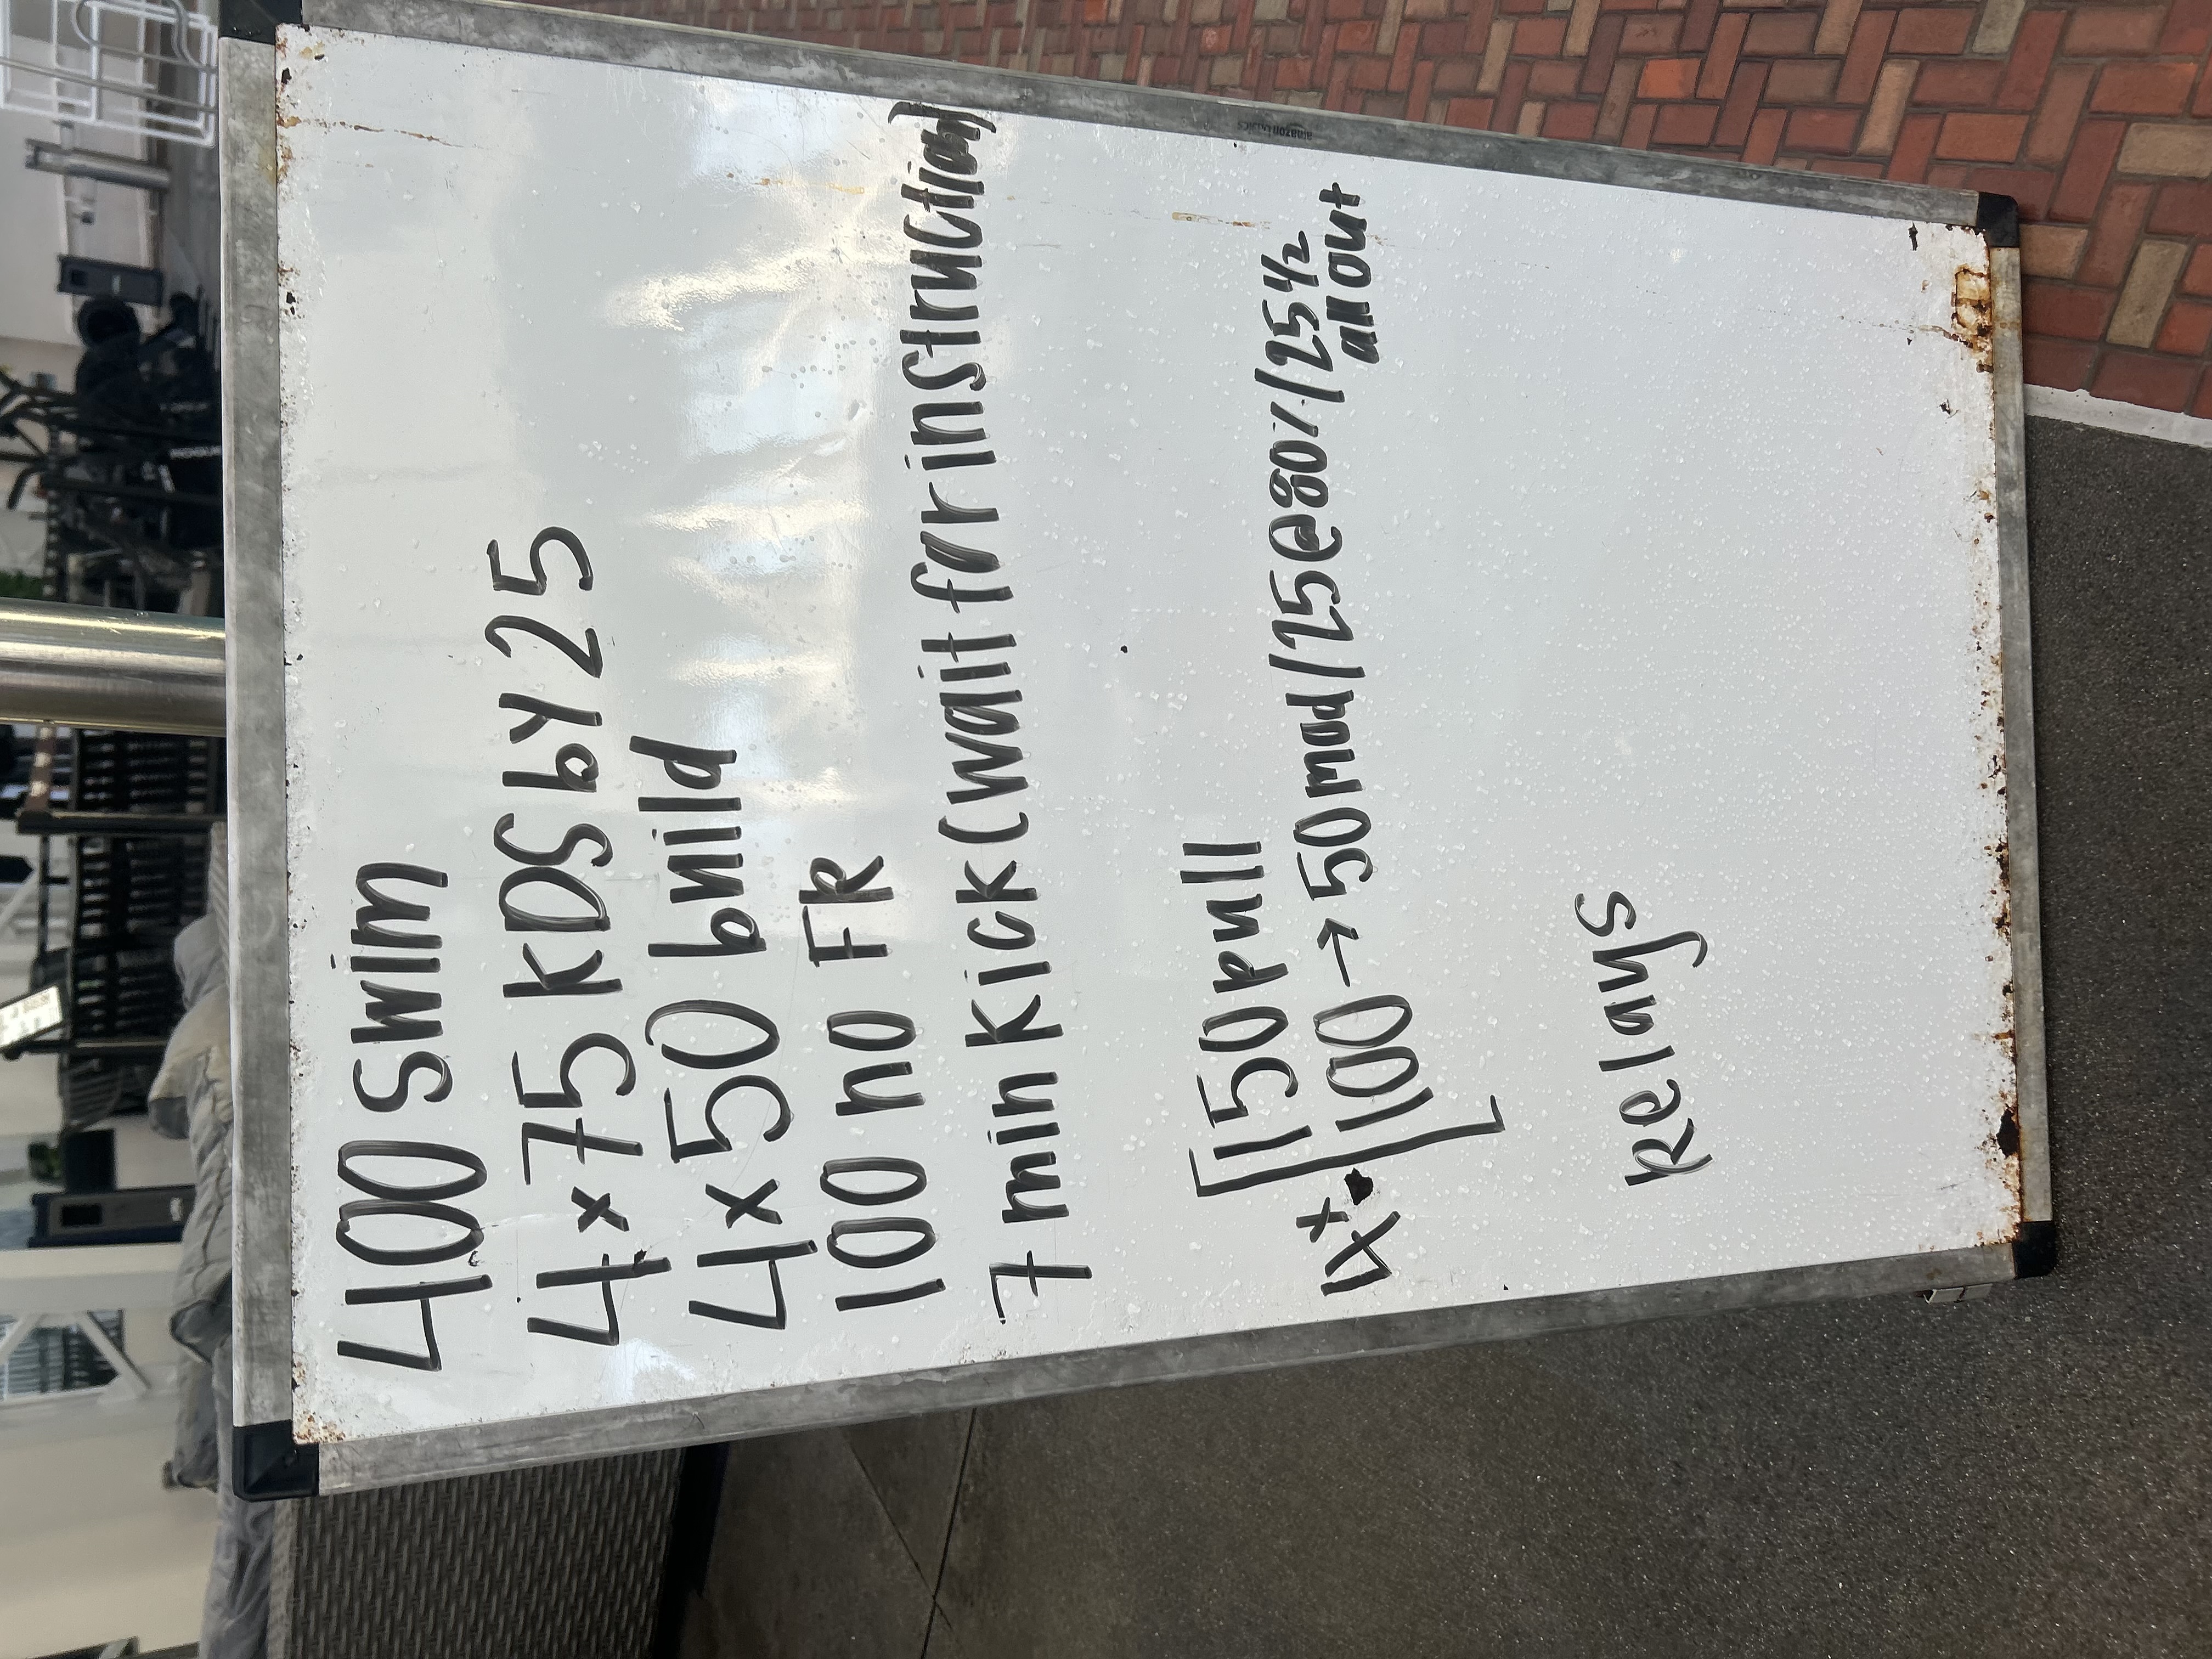 400 swim
4x75 KDS by 25
4x50 build
100 no FR
7 min kick (wait for instruction)
4x [150 pull
100 → 50 mod/25@80%/25 1/2 all out]
Relays
amazonbasics